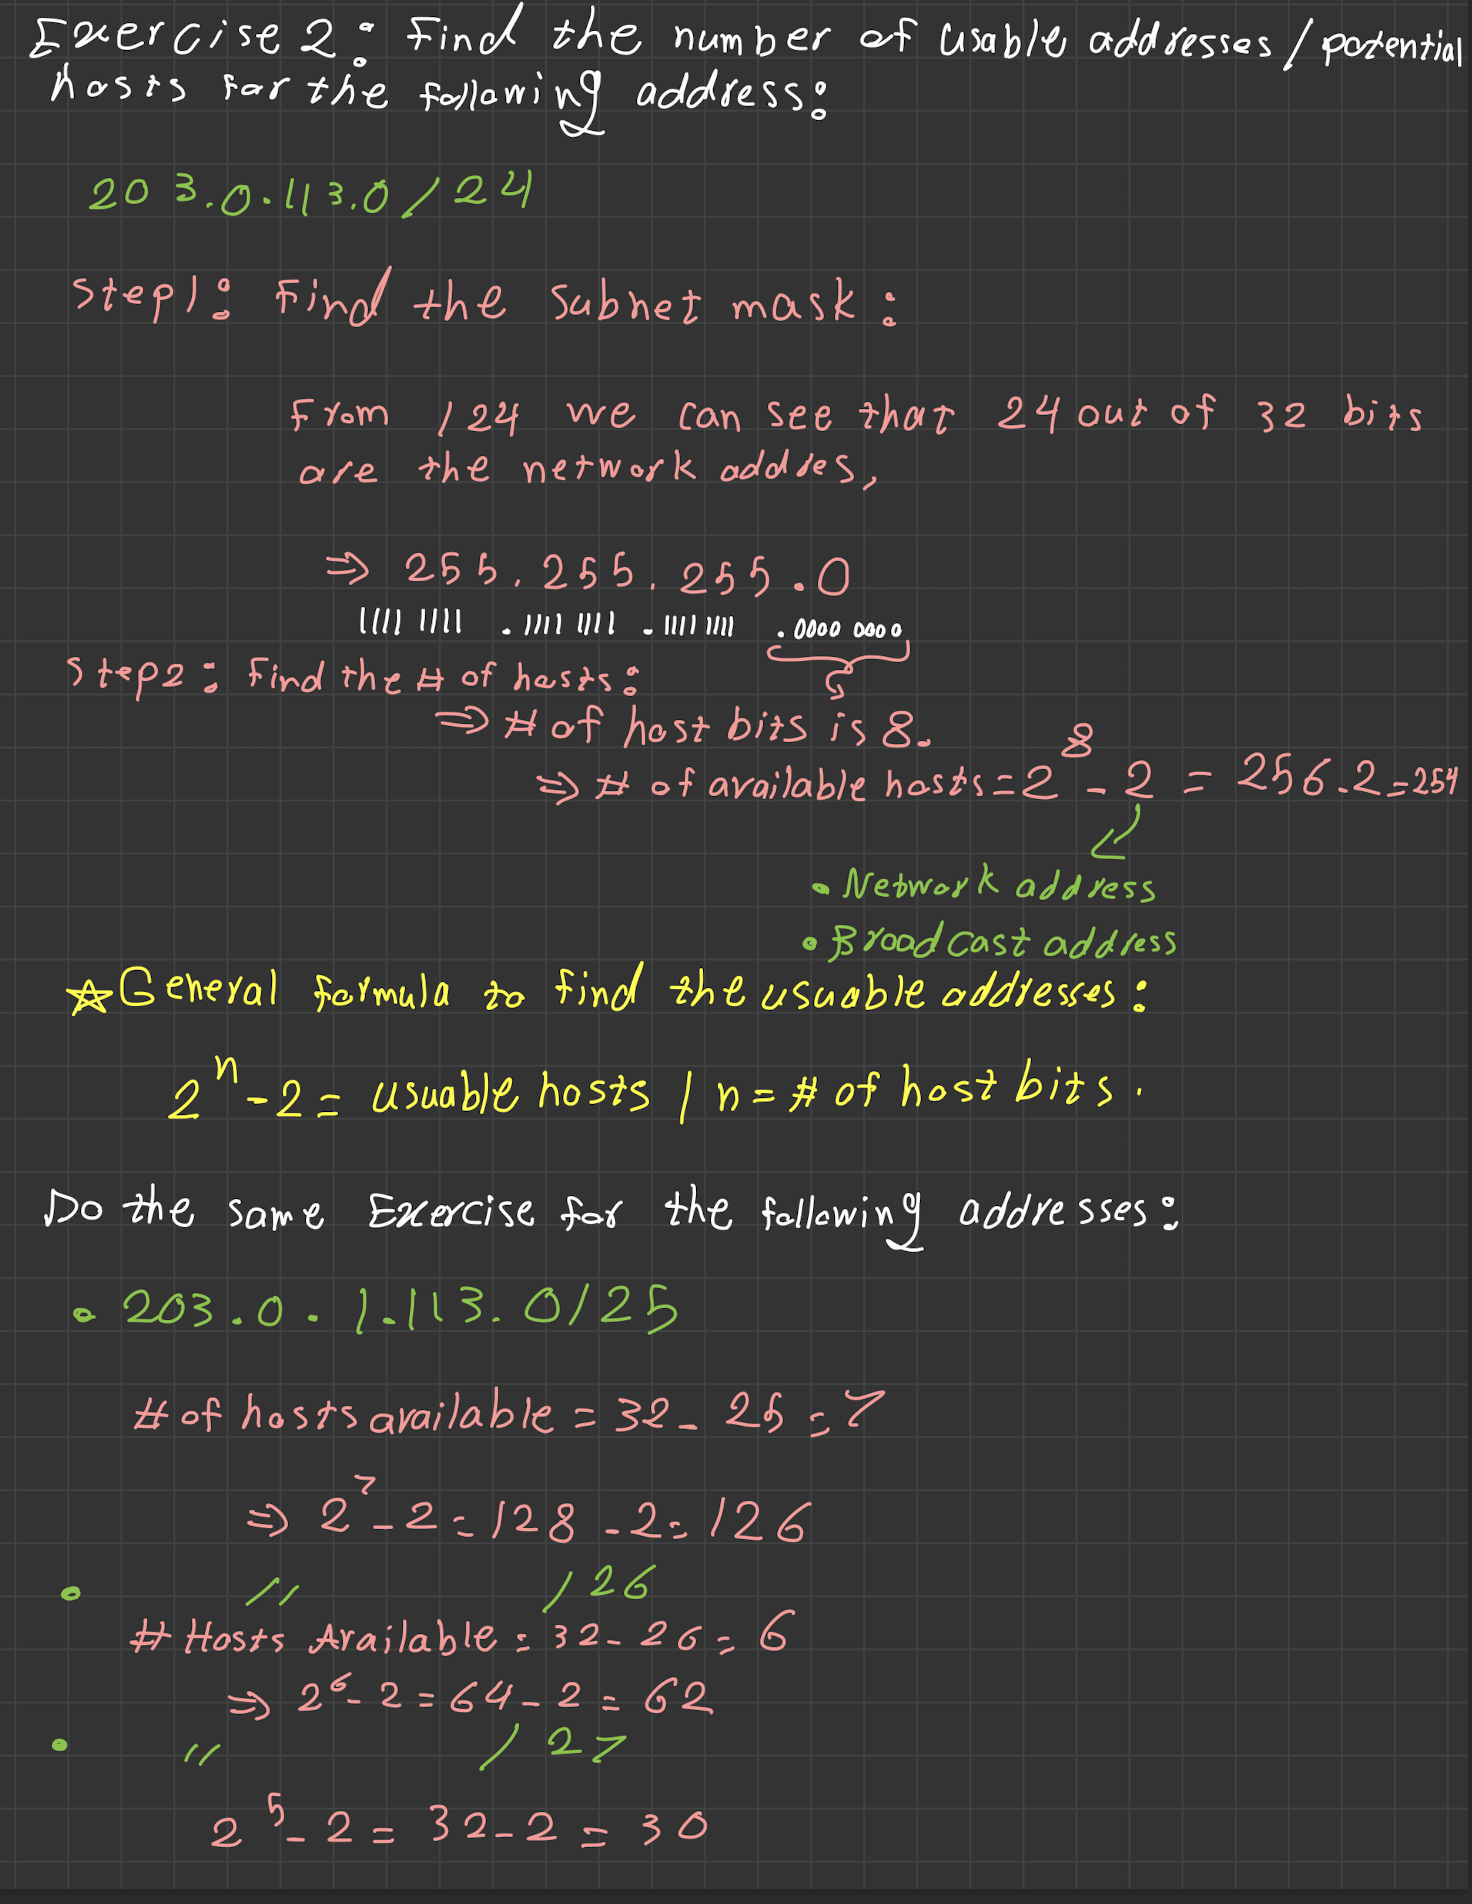 Exercise 2: Find the number of usable addresses / potential
hosts for the following address:
203.0.113.0/24
Step1: Find the subnet mask:
From /24 we can see that 24 out of 32 bits
are the network addres,
⇒ 255.255.255.0
1111 1111 .1111 1111 .1111 1111 .0000 0000
Step2: Find the # of hosts:
⇒ # of host bits is 8.
⇒ # of available hosts = 2⁸ - 2 = 256-2=254
• Network address
• BroadCast address
☆ General formula to find the usuable addresses:
2ⁿ-2 = usuable hosts / n = # of host bits.
Do the same Exercise for the following addresses:
• 203.0.1.113.0/25
# of hosts available = 32 - 25 = 7
⇒ 2⁷-2 = 128 - 2 = 126
• // /26
# Hosts Available = 32-26 = 6
⇒ 2⁶-2 = 64-2 = 62
• // /27
2⁵-2 = 32-2 = 30